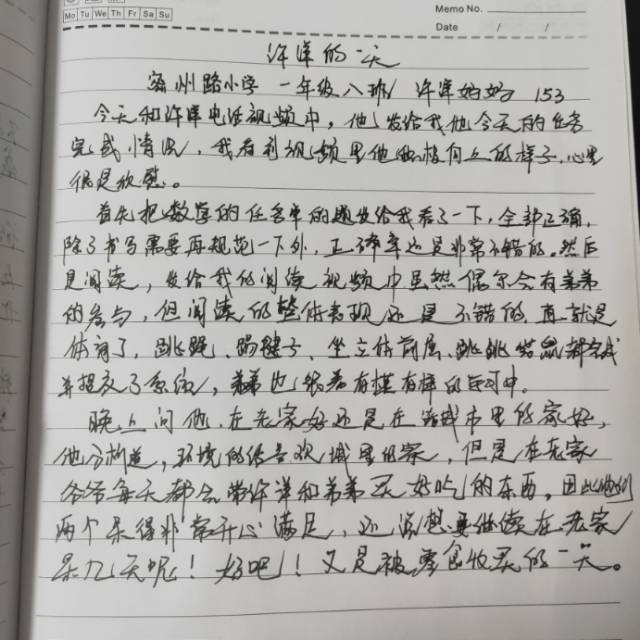 Mo Tu We Th Fr Sa Su
Memo No.
Date / /
许洋的一天
密州路小学 一年级八班 许洋妈妈 153
今天和许洋电话视频中，他发给我他今天的任务
完成情况，我看到视频里他积极向上的样子，心里
很是欣慰。
首先把数学的任务单的题发给我看了一下，全部正确，
除了书写需要再规范一下外，正确率还是非常不错的。然后
是阅读，发给我的阅读视频中虽然偶尔会有弟弟
的参与，但阅读的整体表现还是不错的，再就是
体育了，跳绳、踢毽子、坐立体前屈、跳跳袋鼠都完成
并提交了系统，弟弟也跟着有模有样的
晚上问他，在老家好还是在诸城市里的家好，
他分析道，环境的话喜欢城里的家，但是在老家
爷爷每天都会带许洋和弟弟买好吃的东西，因此他们
两个呆得非常开心满足，还说想要继续在老家
呆几天呢！好吧！又是被零食收买的一天。